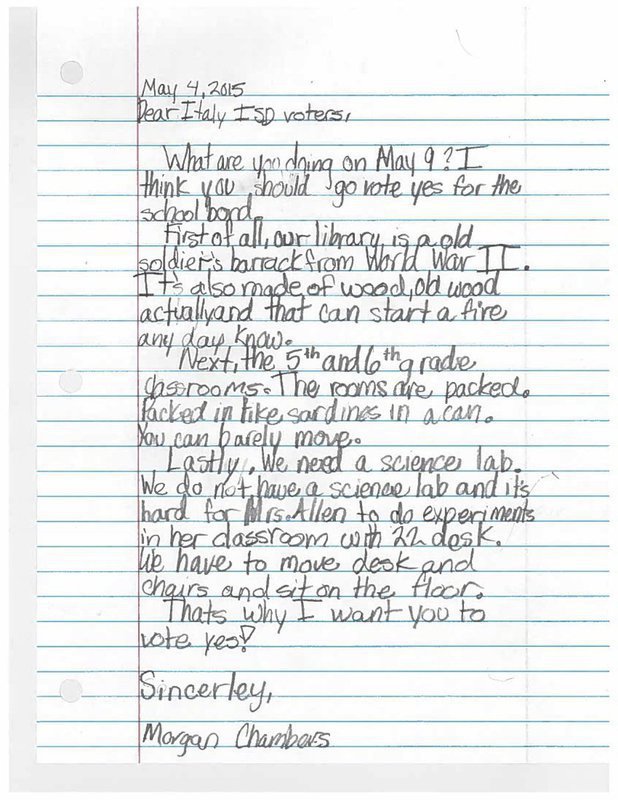 May 4, 2015
Dear Italy ISD voters,
What are you doing on May 9? I
think you should go vote yes for the
school bond.
First of all, our library is a old
soldier's barrack from World War II.
It's also made of wood, old wood
actually and that can start a fire
any day know.
Next, the 5th and 6th grade
classrooms. The rooms are packed.
Packed in like sardines in a can.
You can barely move.
Lastly, We need a science lab.
We do not have a science lab and it's
hard for Mrs. Allen to do experiments
in her classroom with 22 desk.
We have to move desk and
chairs and sit on the floor.
Thats why I want you to
vote yes!
Sincerley,
Morgan Chambers